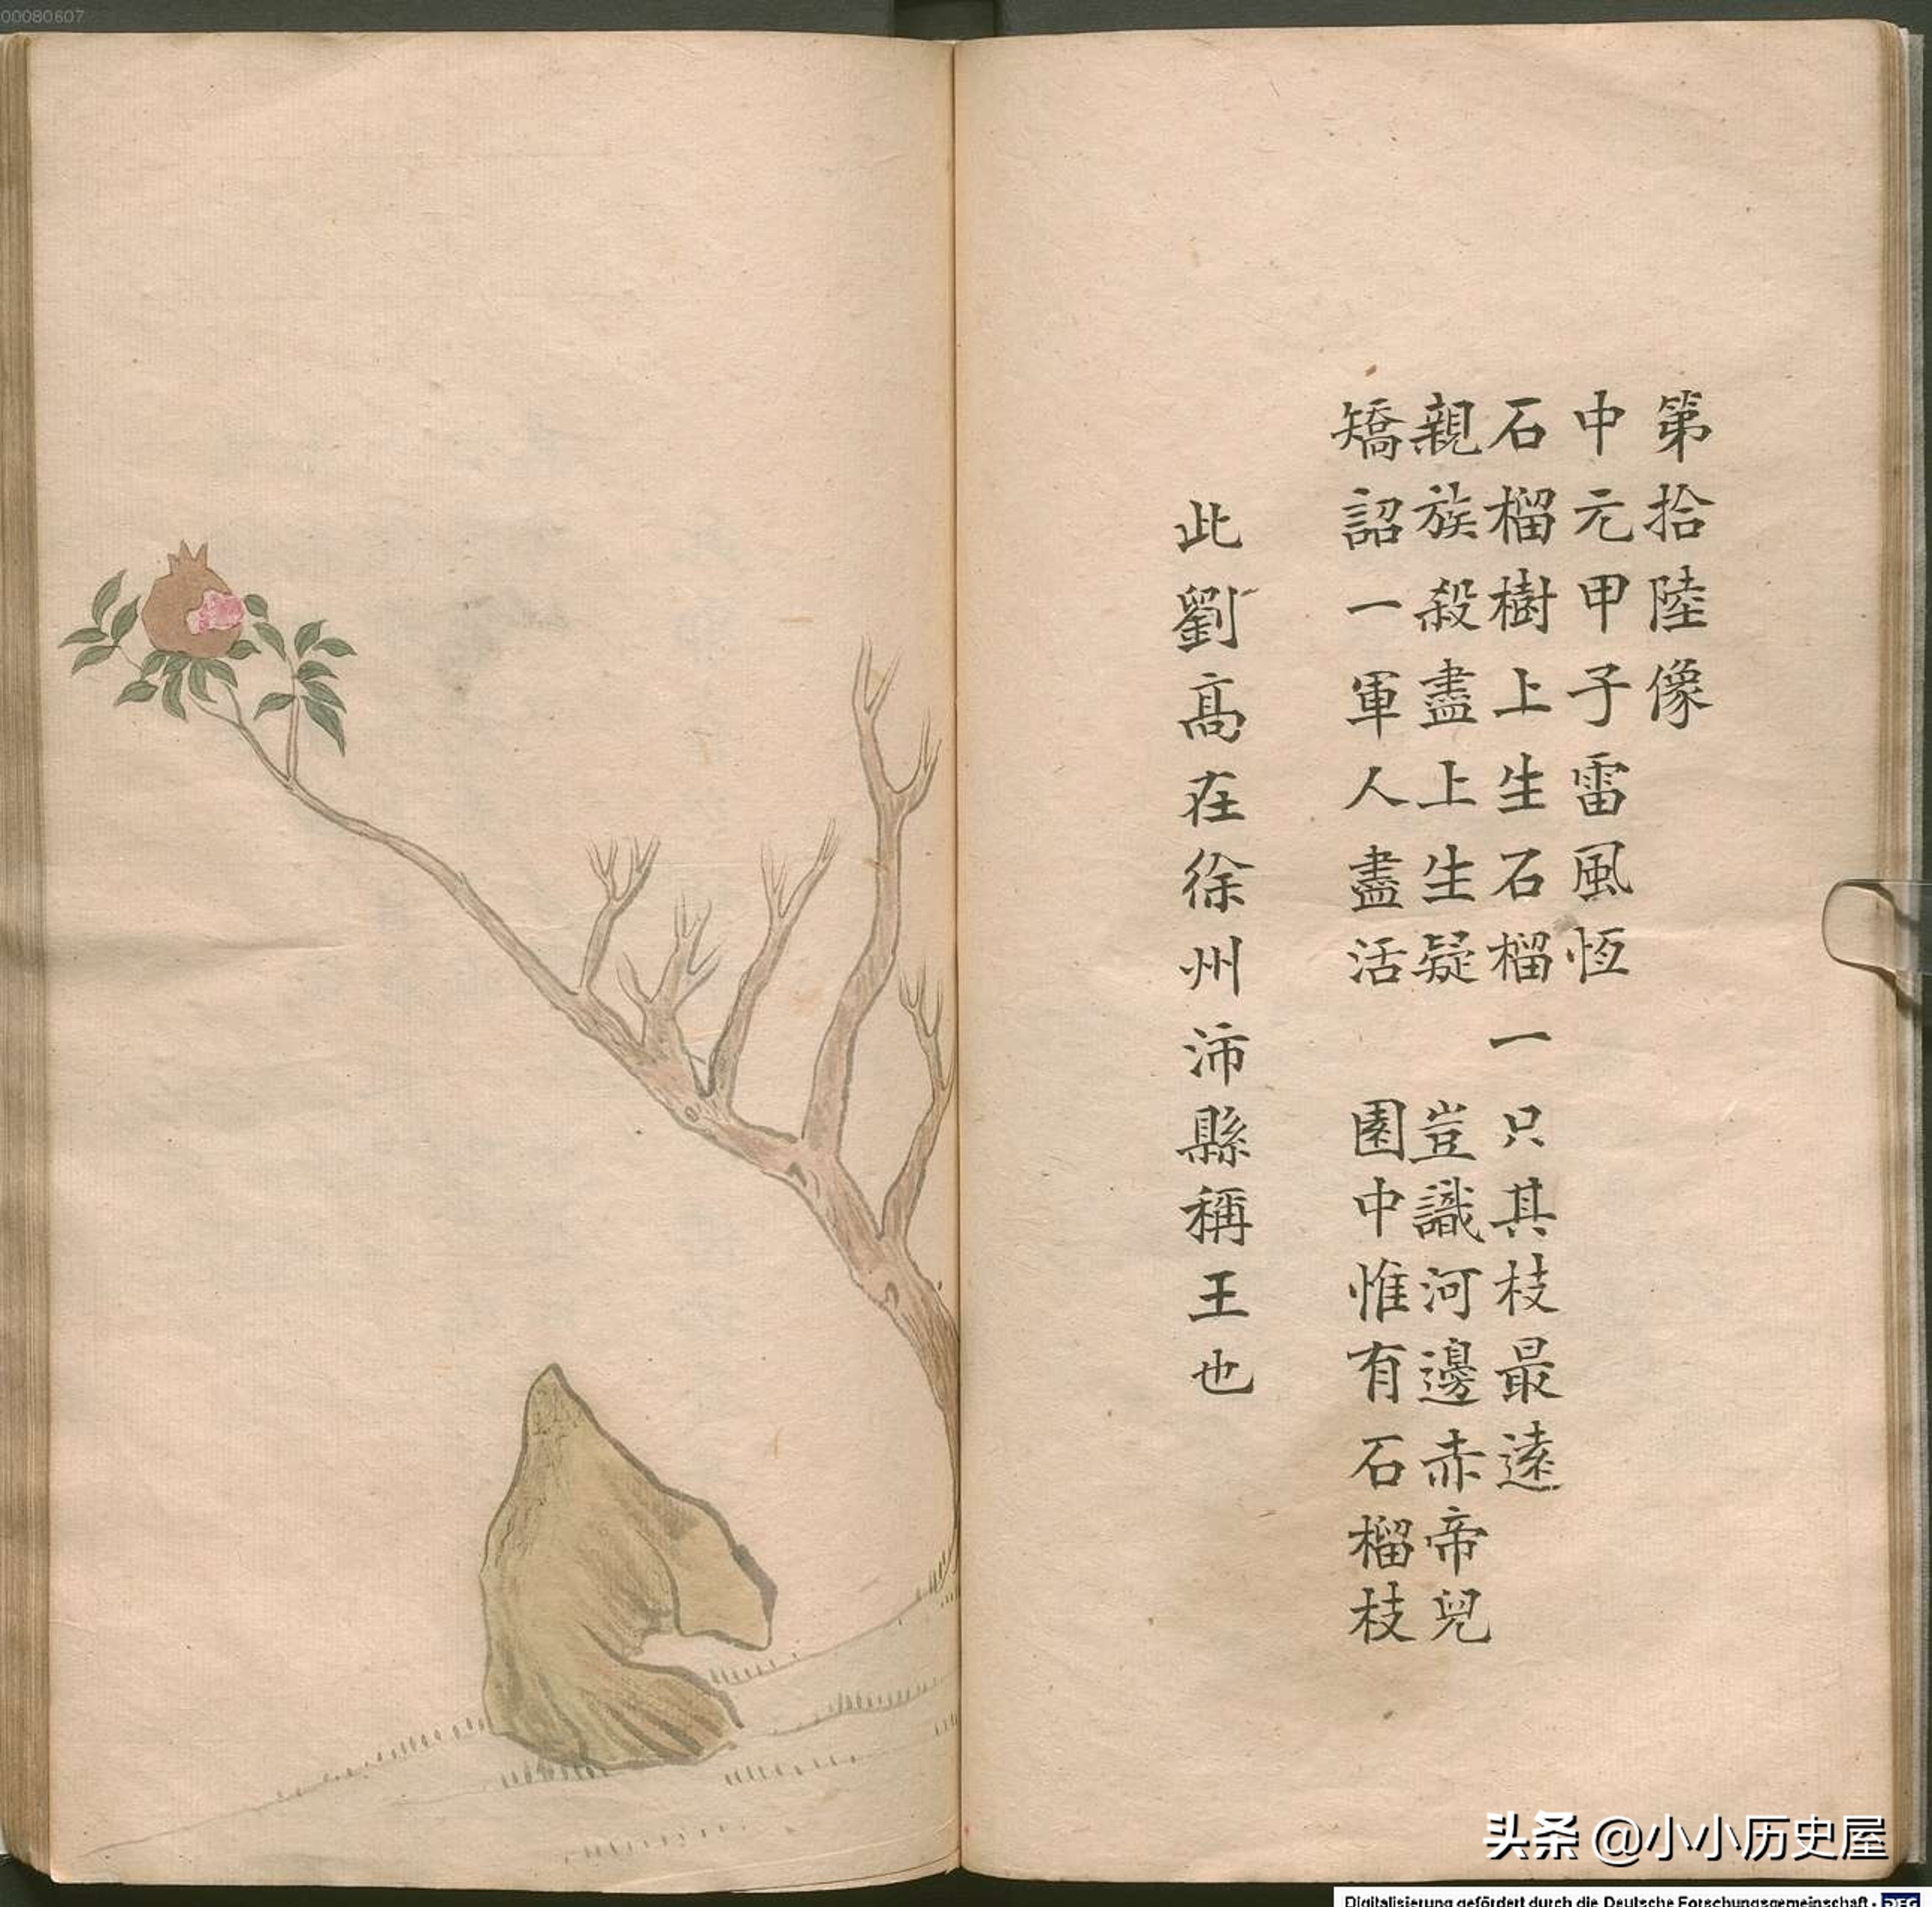 00080607
第拾陸像
中元甲子雷風恆
石榴樹上生石榴一只其枝最遠
親族殺盡上生疑 豈識河邊赤帝兒
矯詔一軍人盡活 園中惟有石榴枝
此劉高在徐州沛縣稱王也
头条 @小小历史屋
Digitalisierung gefördert durch die Deutsche Forschungsgemeinschaft - DFG